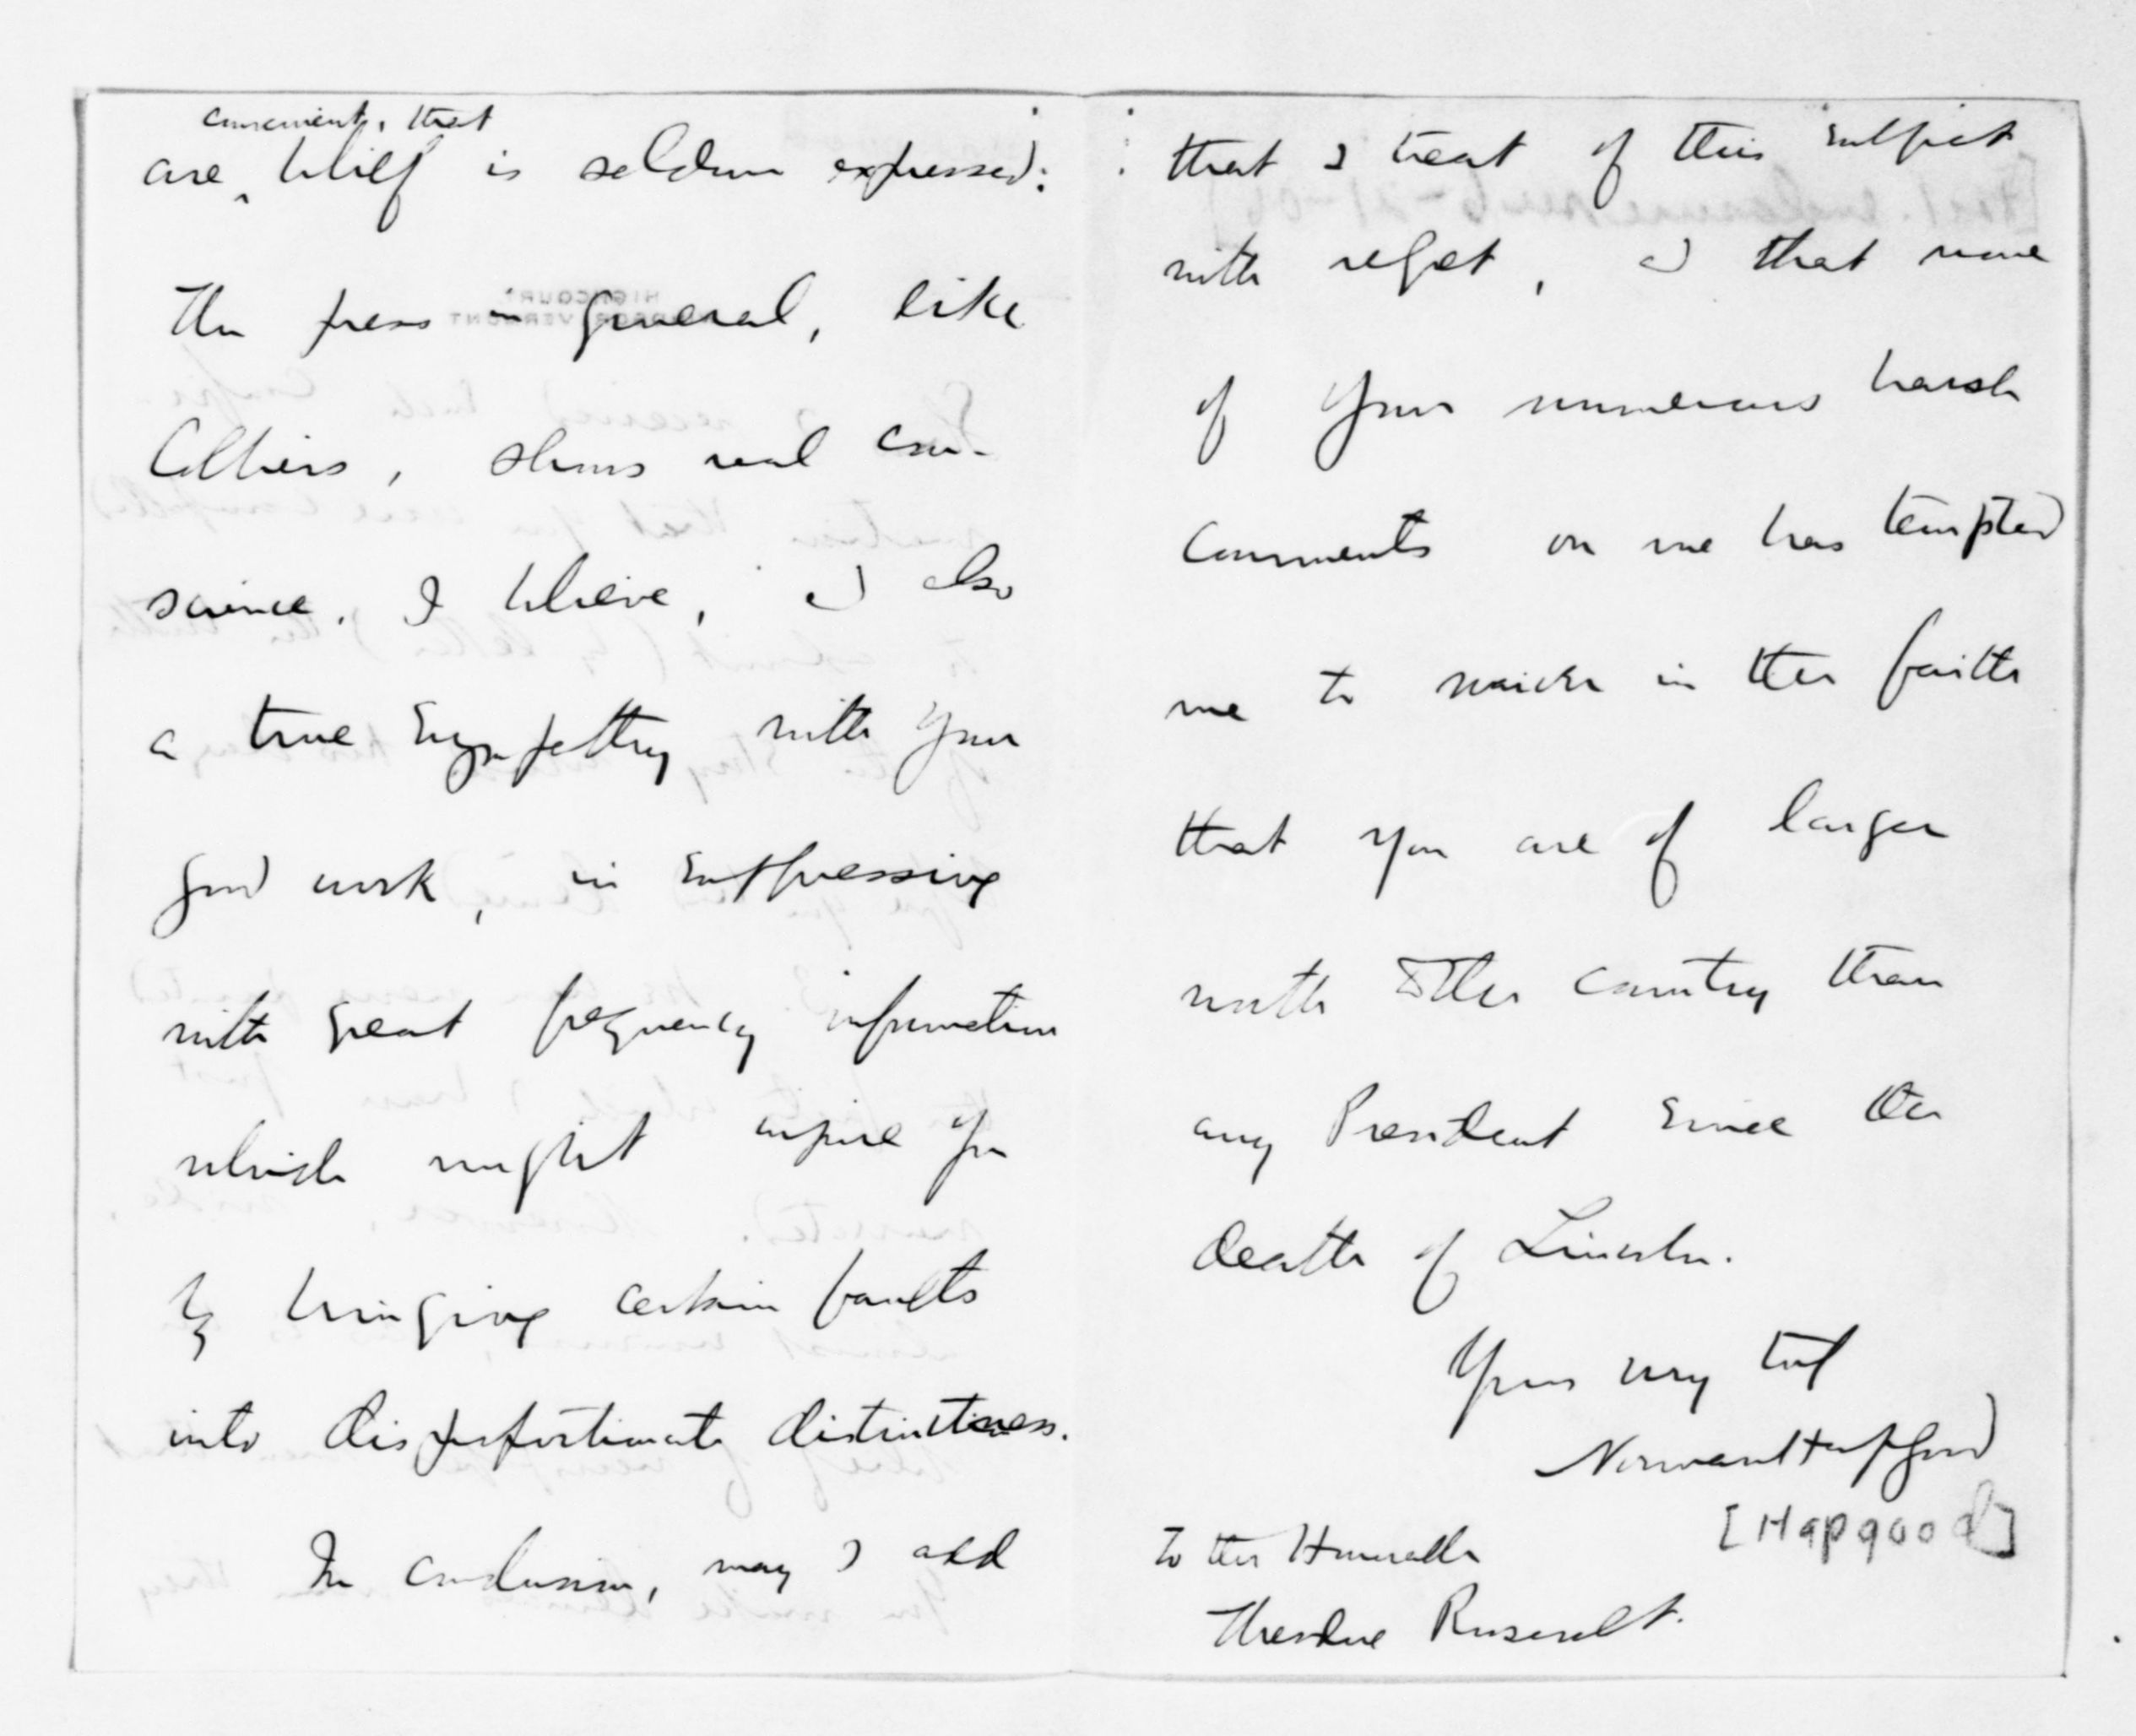 convenient, that
are belief is seldom expressed.
The press in general, like
Colliers, shows real con-
science, I believe, and also
a true sympathy with your
good work, in suppressing
with great frequency information
which might injure you
by bringing certain faults
into disproportionate distinctness.
In conclusion, may I add
that I treat of this subject
with regret, and that none
of your numerous harsh
comments on me has tempted
me to waiver in the faith
that you are of larger
worth to the country than
any President since the
death of Lincoln.
Yours very truly
Norman Hapgood
[Hapgood]
To the Honorable
Theodore Roosevelt.